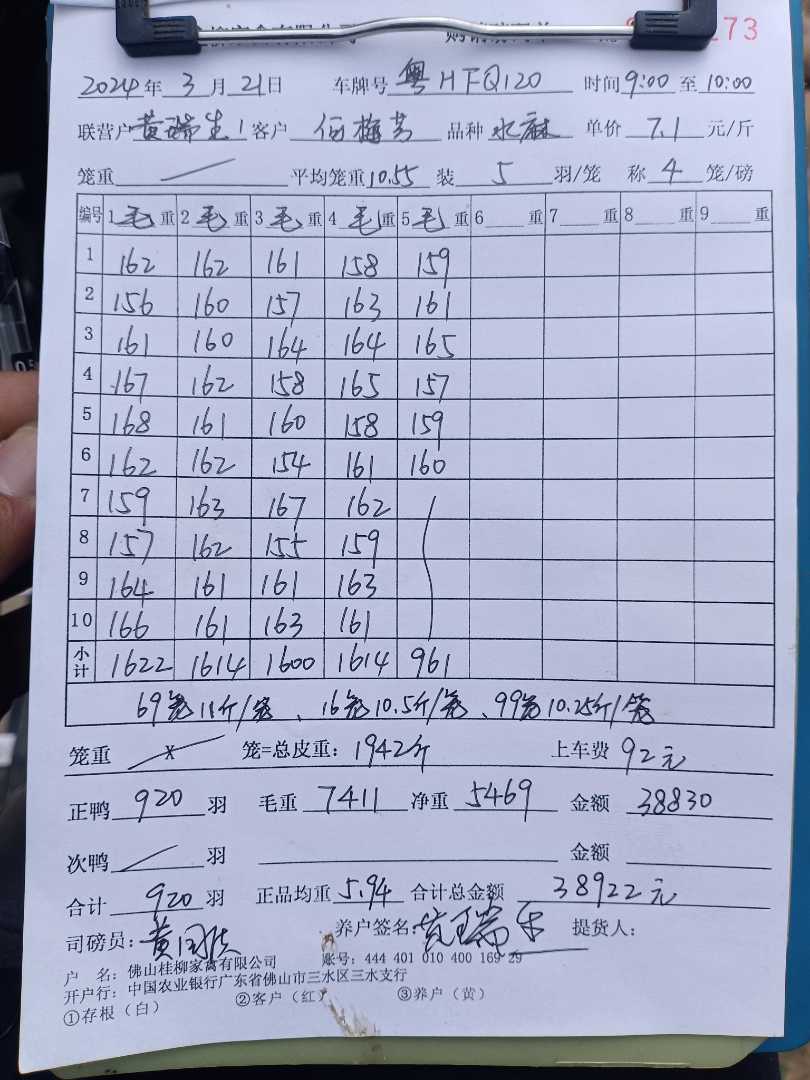 173
2024年 3月 21日 车牌号 粤HFQ120 时间 9:00 至 10:00
联营户 黄瑞生1 客户 伍梅芳 品种 水麻 单价 7.1 元/斤
笼重 平均笼重 10.55 装 5 羽/笼 称 4 笼/磅
编号 1 毛 重 2 毛 重 3 毛 重 4 毛 重 5 毛 重 6 重 7 重 8 重 9 重
1 162 162 161 158 159
2 156 160 157 163 161
3 161 160 164 164 165
4 167 162 158 165 157
5 168 161 160 158 159
6 162 162 154 161 160
7 159 163 167 162
8 157 162 155 159
9 164 161 161 163
10 166 161 163 161
小计 1622 1614 1600 1614 961
69笼11斤/笼、16笼10.5斤/笼、99笼10.25斤/笼
笼重 x 笼=总皮重: 1942斤 上车费 92元
正鸭 920 羽 毛重 7411 净重 5469 金额 38830
次鸭 羽 金额
合计 920 羽 正品均重 5.94 合计总金额 38922元
司磅员: 养户签名: 提货人:
户 名: 佛山桂柳家禽有限公司 账号: 444 401 010 400 169 29
开户行: 中国农业银行广东省佛山市三水区三水支行
①存根(白) ②客户(红) ③养户(黄)